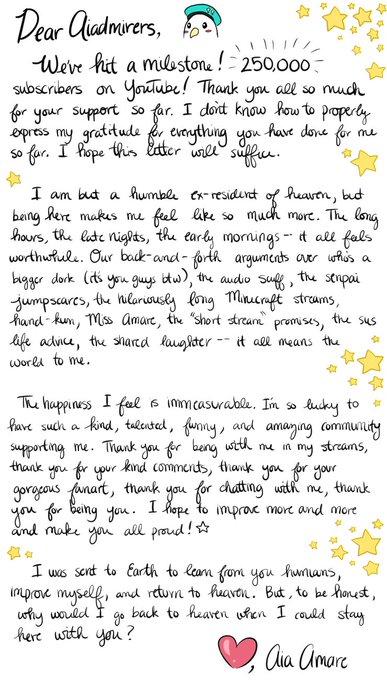 Dear Aiadmirers,
We've hit a milestone! 250,000
subscribers on YouTube! Thank you all so much
for your support so far. I don't know how to properly
express my gratitude for everything you have done for me
so far. I hope this letter will suffice.
I am but a humble ex-resident of heaven, but
being here makes me feel like so much more. The long
hours, the late nights, the early mornings -- it all feels
worthwhile. Our back-and-forth arguments over who's a
bigger dork (it's you guys btw), the audio suff, the senpai
jumpscares, the hilariously long Minecraft streams,
hand-kun, Miss Amare, the "short stream" promises, the sus
life advice, the shared laughter -- it all means the
world to me.
The happiness I feel is immeasurable. I'm so lucky to
have such a kind, talented, funny, and amazing community
supporting me. Thank you for being with me in my streams,
thank you for your kind comments, thank you for your
gorgeous fanart, thank you for chatting with me, thank
you for being you. I hope to improve more and more
and make you all proud! ☆
I was sent to Earth to learn from you humans,
improve myself, and return to heaven. But, to be honest,
why would I go back to heaven when I could stay
here with you?
, Aia Amare